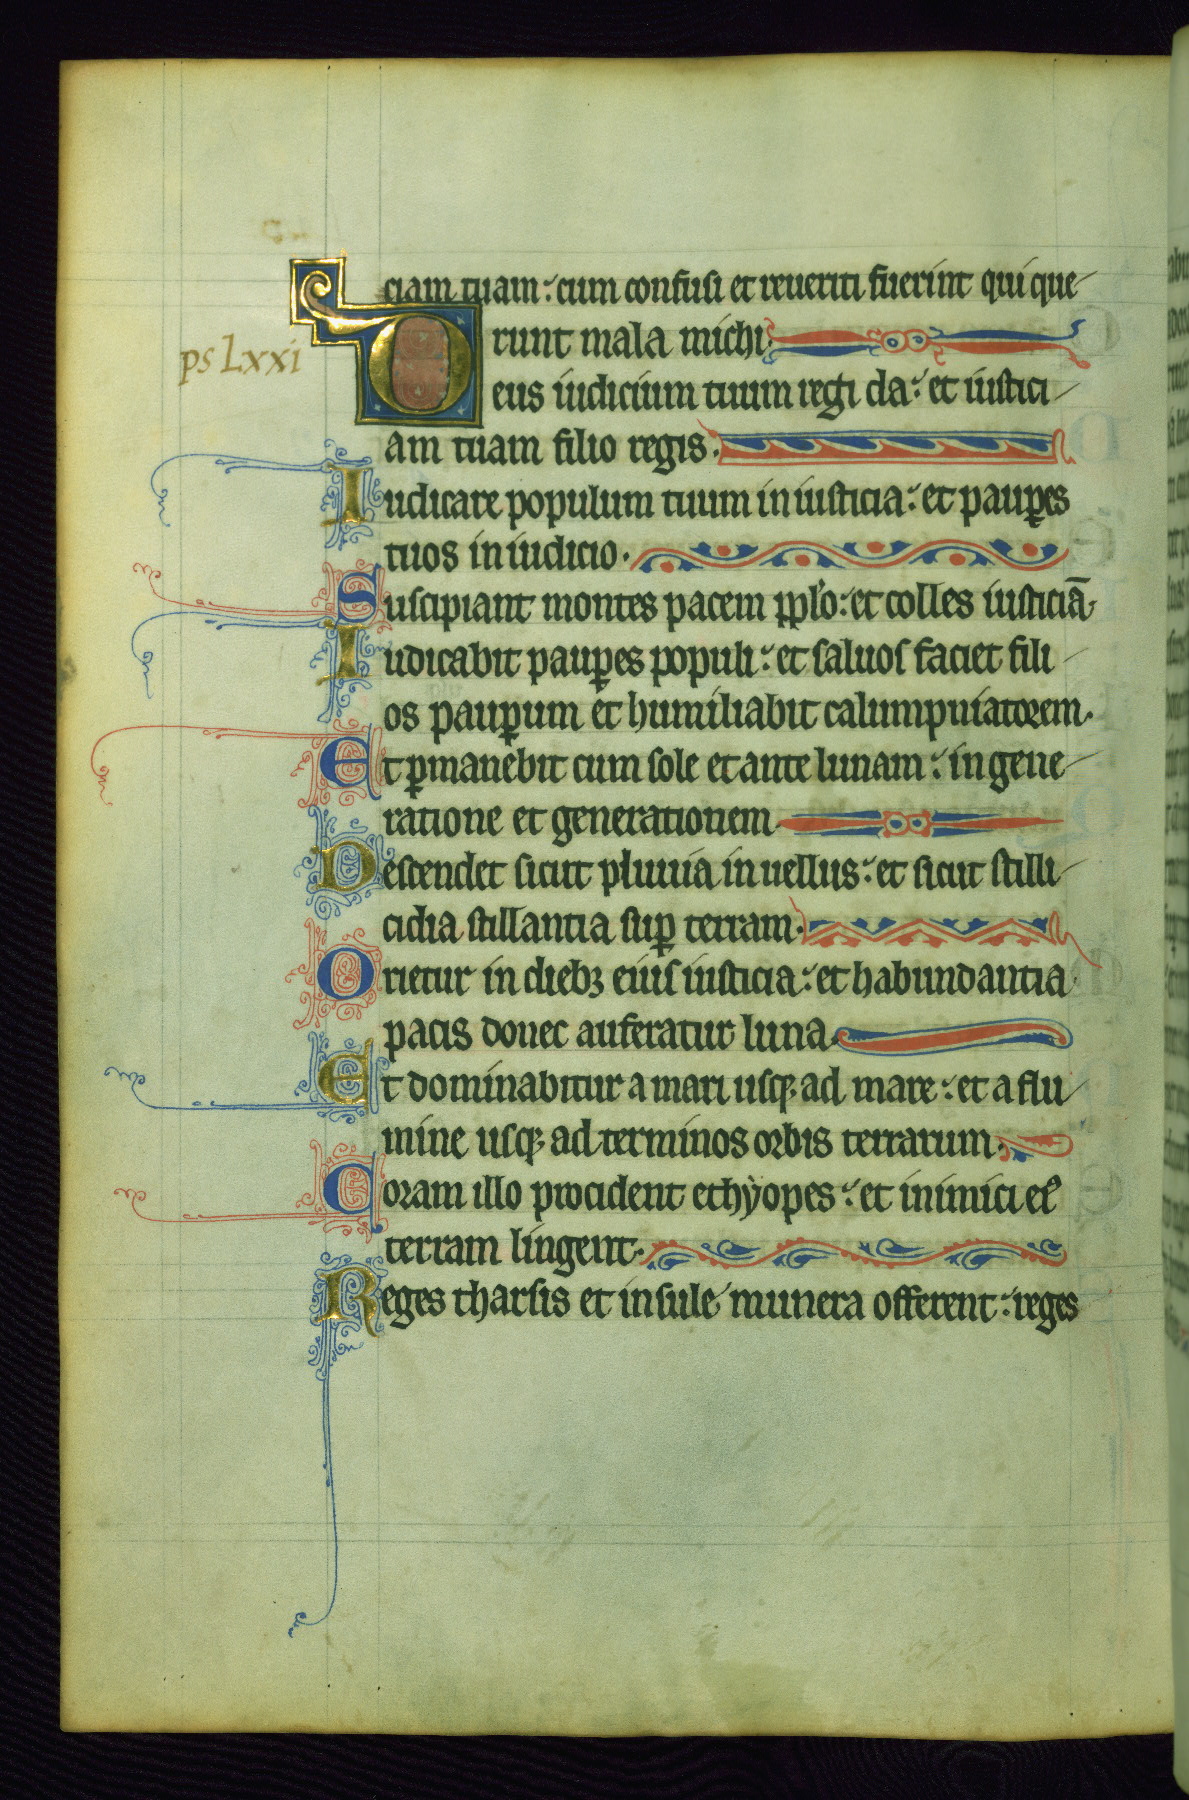 ciam tuam: cum confusi et reueriti fuerint qui que
runt mala michi.
ps Lxxi
Deus iudicium tuum regi da: et iustici
am tuam filio regis.
Iudicare populum tuum in iusticia: et paup̲es
tuos in iudicio.
Suscipiant montes pacem pplo: et colles iusticiā.
Iudicabit paup̲es populi: et saluos faciet fili
os paup̲um et humiliabit calumpniatorem.
Et p̲manebit cum sole et ante lunam: in gene
ratione et generationem
Descendet sicut pluuia in uellus: et sicut stilli
cidia stillantia sup̲ terram.
Orietur in dieb; eius iusticia: et habundantia
pacis donec auferatur luna.
Et dominabitur a mari usq; ad mare: et a flu
mine usq; ad terminos orbis terrarum.
Coram illo procident ethyopes: et inimici ei᾽
terram lingent.
Reges tharsis et insule munera offerent: reges